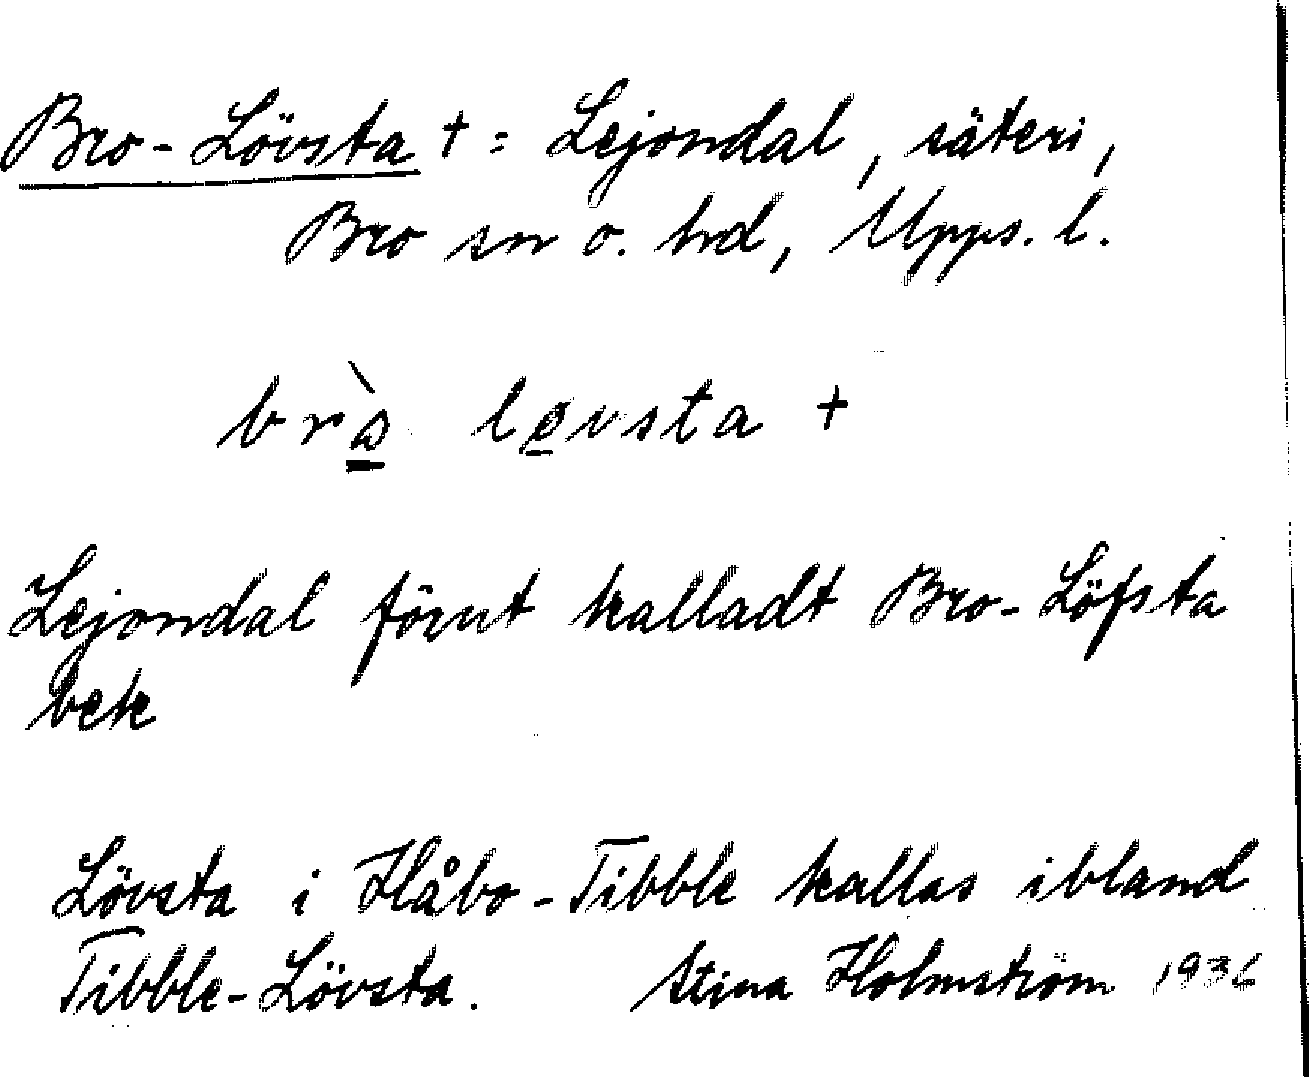 Bro-Lövsta † = Lejondal, säteri,
Bro sn o. hd, Upps. l.
brò̲s lø̲vsta †
Lejondal förut kalladt Bro-Löfsta
bek
Lövsta i Håbo-Tibble kallas ibland
Tibble-Lövsta. Stina Holmström 1936